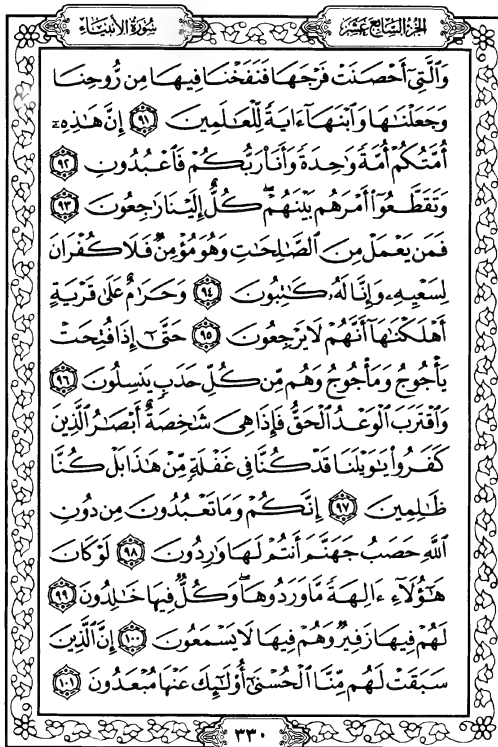 الجزء السابع عشر
سورة الأنبياء
وَالَّتِي أَحْصَنَتْ فَرْجَهَا فَنَفَخْنَا فِيهَا مِن رُّوحِنَا
وَجَعَلْنَاهَا وَابْنَهَا ءَايَةً لِّلْعَالَمِينَ ٩١ إِنَّ هَذِهِۦ
أُمَّتُكُمْ أُمَّةً وَاحِدَةً وَأَنَا رَبُّكُمْ فَاعْبُدُونِ ٩٢
وَتَقَطَّعُوا أَمْرَهُم بَيْنَهُمْ كُلٌّ إِلَيْنَا رَاجِعُونَ ٩٣
فَمَن يَعْمَلْ مِنَ الصَّالِحَاتِ وَهُوَ مُؤْمِنٌ فَلَا كُفْرَانَ
لِسَعْيِهِۦ وَإِنَّا لَهُۥ كَاتِبُونَ ٩٤ وَحَرَامٌ عَلَى قَرْيَةٍ
أَهْلَكْنَاهَا أَنَّهُمْ لَا يَرْجِعُونَ ٩٥ حَتَّىٰ إِذَا فُتِحَتْ
يَأْجُوجُ وَمَأْجُوجُ وَهُم مِّن كُلِّ حَدَبٍ يَنسِلُونَ ٩٦
وَاقْتَرَبَ الْوَعْدُ الْحَقُّ فَإِذَا هِيَ شَاخِصَةٌ أَبْصَارُ الَّذِينَ
كَفَرُوا يَاوَيْلَنَا قَدْ كُنَّا فِي غَفْلَةٍ مِّنْ هَذَا بَلْ كُنَّا
ظَالِمِينَ ٩٧ إِنَّكُمْ وَمَا تَعْبُدُونَ مِن دُونِ
اللَّهِ حَصَبُ جَهَنَّمَ أَنتُمْ لَهَا وَارِدُونَ ٩٨ لَوْ كَانَ
هَؤُلَاءِ ءَالِهَةً مَّا وَرَدُوهَا وَكُلٌّ فِيهَا خَالِدُونَ ٩٩
لَهُمْ فِيهَا زَفِيرٌ وَهُمْ فِيهَا لَا يَسْمَعُونَ ١٠٠ إِنَّ الَّذِينَ
سَبَقَتْ لَهُم مِّنَّا الْحُسْنَىٰ أُوْلَئِكَ عَنْهَا مُبْعَدُونَ ١٠١
٣٣٠